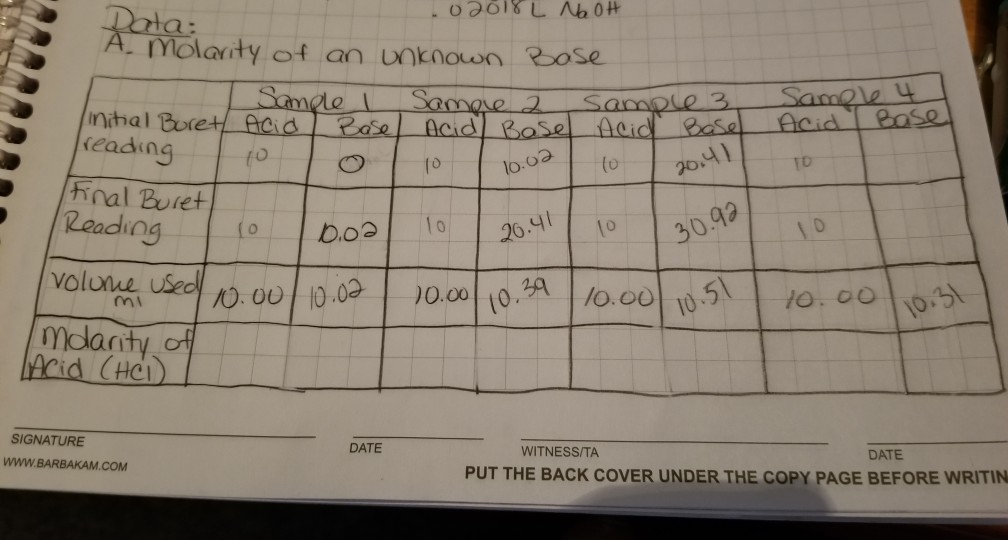 .02018L NaOH
Data:
A. Molarity of an unknown Base
Sample 1 Sample 2 Sample 3 Sample 4
Initial Buret reading Acid Base Acid Base Acid Base Acid Base
10 0 10 10.02 10 20.41 10
Final Buret Reading 10 10.02 10 20.41 10 30.92 10
Volume used ml 10.00 10.02 10.00 10.39 10.00 10.51 10.00 10.31
Molarity of Acid (HCl)
SIGNATURE DATE WITNESS/TA DATE
WWW.BARBAKAM.COM
PUT THE BACK COVER UNDER THE COPY PAGE BEFORE WRITIN